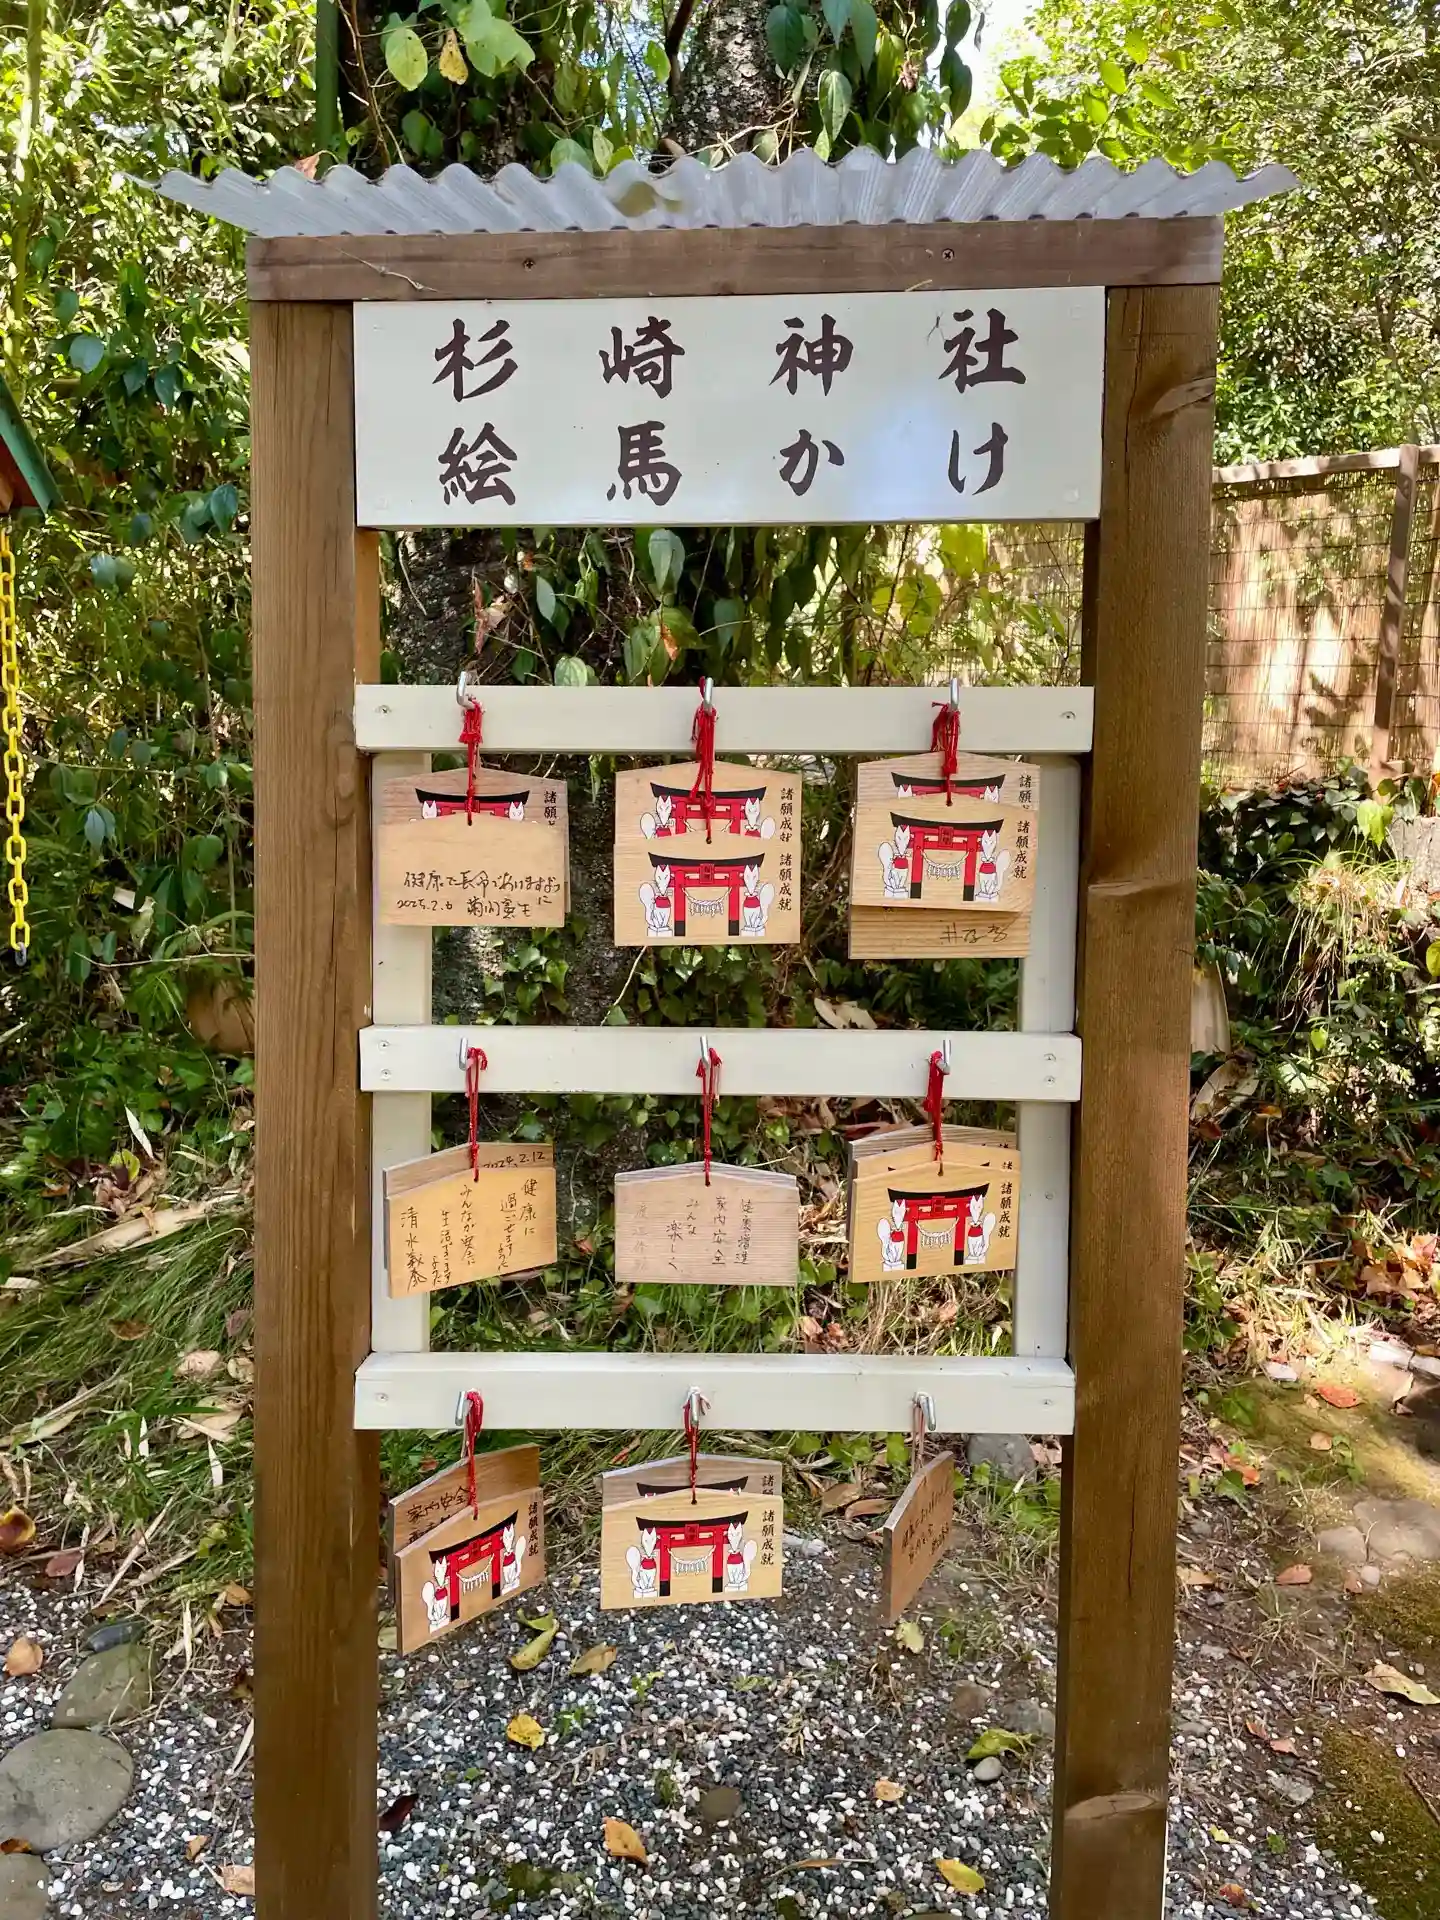 杉崎神社
絵馬かけ
諸願
健康で長命でありますように
2025.2.6
諸願成就
諸願成就
諸願
諸願成就
2024.2.12
健康に
過ごせますように
みんなが安全に
生活できますように
健康増進
家内安全
みんな
楽しく
諸願成就
家内安全
諸願成就
諸願
諸願成就